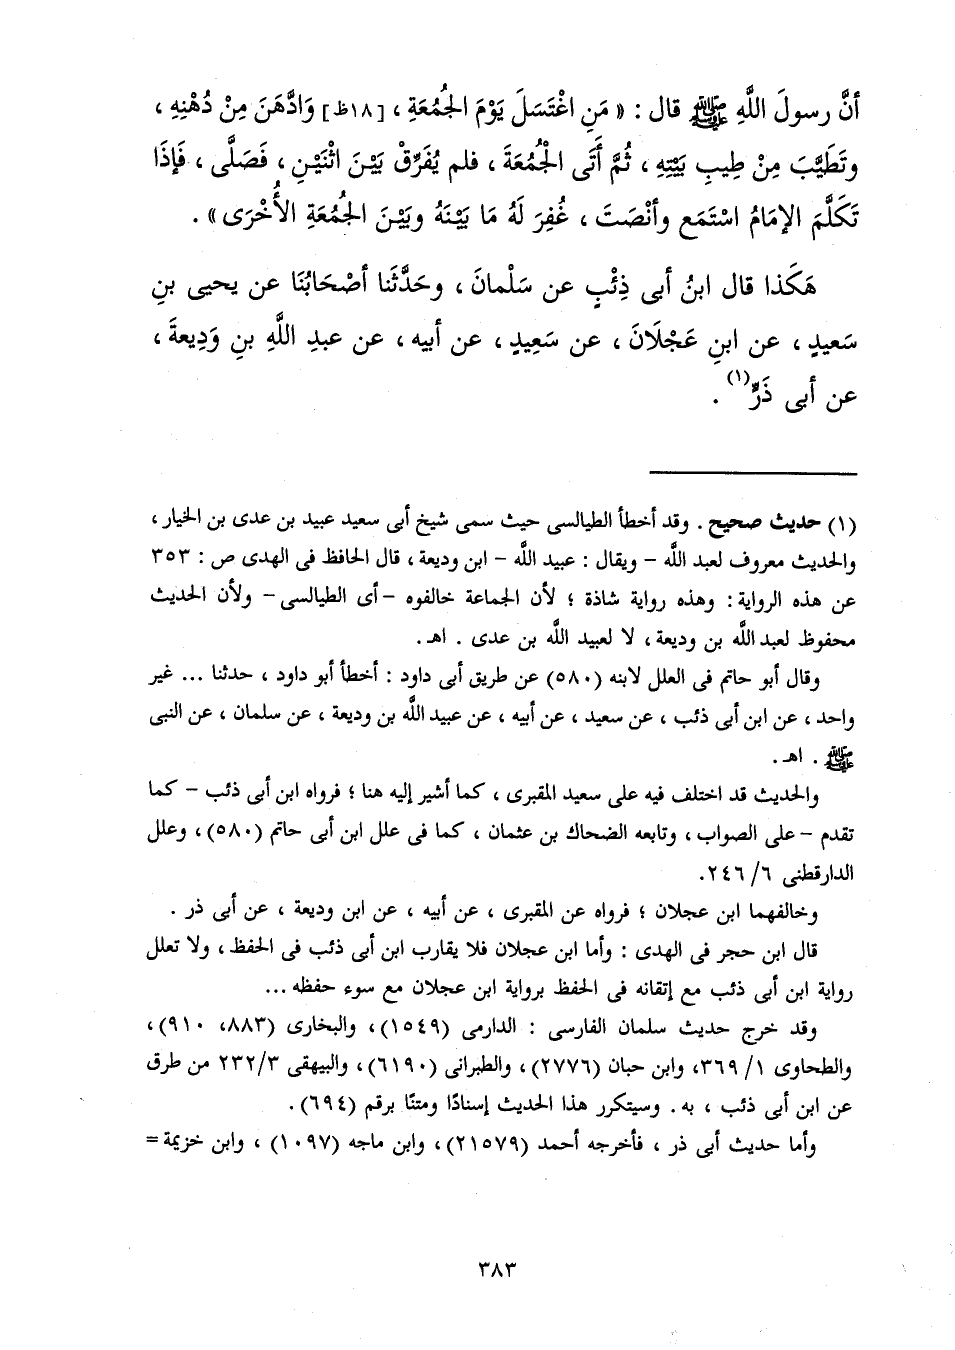 أنَّ رسولَ اللَّهِ ﷺ قال : « مَنِ اغْتَسَلَ يَوْمَ الجُمُعَةِ ، [١٨ظ] وَادَّهَنَ مِنْ دُهْنِهِ ،
وتَطَيَّبَ مِنْ طِيبِ بَيْتِهِ ، ثُمَّ أَتَى الْجُمُعَةَ ، فلم يُفَرِّقْ بَيْنَ اثْنَيْنِ ، فَصَلَّى ، فَإِذَا
تَكَلَّمَ الإمَامُ اسْتَمَع وأنْصَتَ ، غُفِرَ لَهُ مَا بَيْنَهُ وبَيْنَ الجُمُعَةِ الأُخْرَى » .
هَكَذا قال ابنُ أبى ذِئْبٍ عن سَلْمانَ ، وحَدَّثَنا أصْحَابُنَا عن يحيى بنِ
سَعيدٍ ، عن ابنِ عَجْلَانَ ، عن سَعِيدٍ ، عن أبيه ، عن عبدِ اللَّهِ بنِ وَدِيعةَ ،
عن أبى ذَرٍّ(١) .
(١) حديث صحيح . وقد أخطأ الطيالسى حيث سمى شيخ أبى سعيد عبيد بن عدى بن الخيار ،
والحديث معروف لعبد اللَّه – ويقال : عبيد اللَّه – ابن وديعة ، قال الحافظ فى الهدى ص : ٣٥٣
عن هذه الرواية : وهذه رواية شاذة ؛ لأن الجماعة خالفوه –أى الطيالسى– ولأن الحديث
محفوظ لعبد اللَّه بن وديعة ، لا لعبيد اللَّه بن عدى . اهـ .
وقال أبو حاتم فى العلل لابنه (٥٨٠) عن طريق أبى داود : أخطأ أبو داود ، حدثنا ... غير
واحد ، عن ابن أبى ذئب ، عن سعيد ، عن أبيه ، عن عبيد اللَّه بن وديعة ، عن سلمان ، عن النبى
ﷺ . اهـ .
والحديث قد اختلف فيه على سعيد المقبرى ، كما أشير إليه هنا ؛ فرواه ابن أبى ذئب – كما
تقدم – على الصواب ، وتابعه الضحاك بن عثمان ، كما فى علل ابن أبى حاتم (٥٨٠) ، وعلل
الدارقطنى ٦/ ٢٤٦.
وخالفهما ابن عجلان ؛ فرواه عن المقبرى ، عن أبيه ، عن ابن وديعة ، عن أبى ذر .
قال ابن حجر فى الهدى : وأما ابن عجلان فلا يقارب ابن أبى ذئب فى الحفظ ، ولا تعلل
رواية ابن أبى ذئب مع إتقانه فى الحفظ برواية ابن عجلان مع سوء حفظه ...
وقد خرج حديث سلمان الفارسى : الدارمى (١٥٤٩)، والبخارى (٨٨٣، ٩١٠)،
والطحاوى ١/ ٣٦٩، وابن حبان (٢٧٧٦) ، والطبرانى (٦١٩٠) ، والبيهقى ٢٣٢/٣ من طرق
عن ابن أبى ذئب ، به . وسيتكرر هذا الحديث إسنادًا ومتنًا برقم (٦٩٤) .
وأما حديث أبى ذر ، فأخرجه أحمد (٢١٥٧٩) ، وابن ماجه (١٠٩٧) ، وابن خزيمة =
٣٨٣